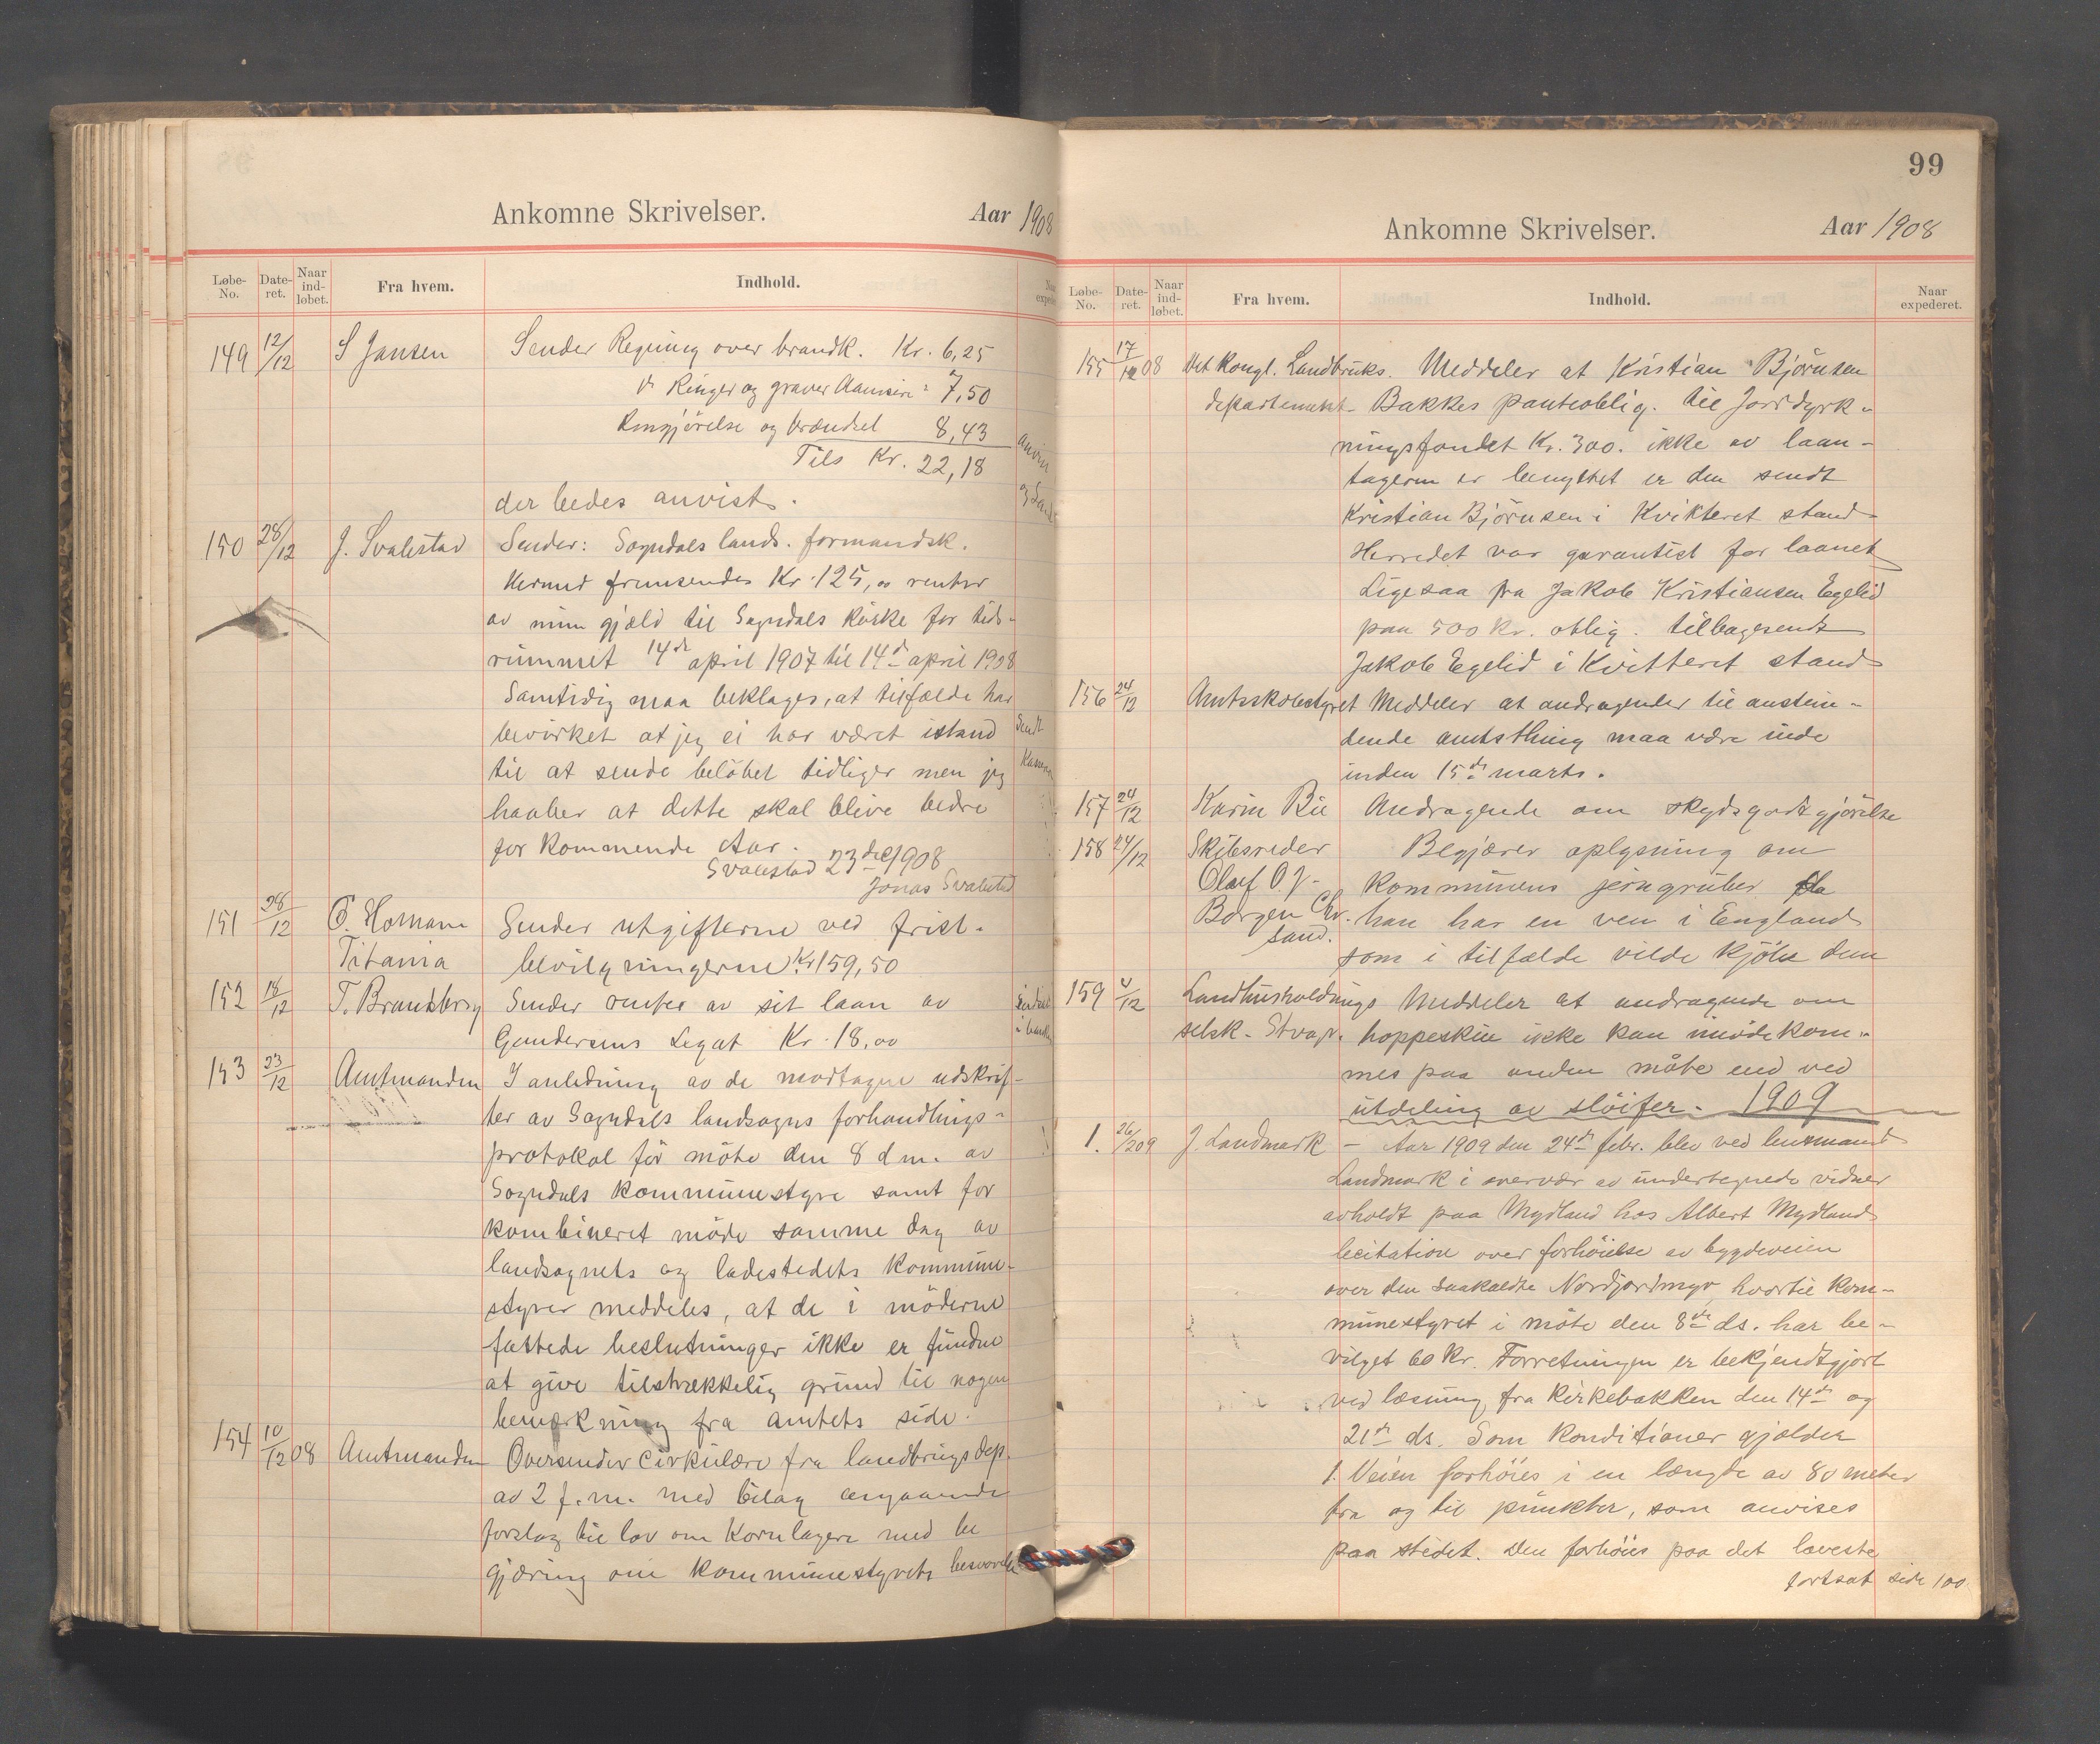 Ankomne Skrivelser. Aar 1908
Løbe-No. Date-ret. Naar ind-løbet. Fra hvem. Indhold.
149 12/12 S Jansen Sender Regning over brandk. Kr. 6,25
Ringer og graver 7,50
Rengjörelse og brændsel 8,43
Tils Kr. 22,18
der bedes anvist.
150 28/12 J. Svalestad Sender: Sogndals lands. formandsk.
Hermed fremsendes Kr. 125,00 renter
av min gjæld til Sogndals kirke for tids-
rummet 14de april 1907 til 14de april 1908
Samtidig maa beklages, at tilfælde har
bevirket at jeg ei har været istand
til at sende belöbet tidliger men jeg
haaber at dette skal blive bedre
for kommende Aar.
Svalestad 23 dec 1908
Jonas Svalestad
151 28/12 O. Homann Sender utgifterne ved frist-
Titania bevilgningerne Kr 159,50
152 18/12 T. Brandsberg Sender renter av sit laan av
Gundersens Legat Kr. 18,00
153 23/12 Amtmanden I anledning av de modtagne udskrif-
ter av Sogndals landsogns forhandlings-
protokol för möte den 8 d.m. av
Sogndals kommunestyre samt for
kombineret möde samme dag av
landsognets og ladestedets kommune-
styrer meddeles, at de i möderne
fattede beslutninger ikke er fundne
at give tilstrækkelig grund til nogen
bemærkning fra amtets side.
154 10/12 08 Amtmanden Oversender cirkulære fra landbrugsdep.
av 2 f.m. med bilag angaaende
forslag til lov om Kornlagere med be
gjæring om kommunestyrets besvarelse
99
Ankomne Skrivelser. Aar 1908
Løbe-No. Date-ret. Naar ind-løbet. Fra hvem. Indhold. Naar expederet.
155 17/12 08 Det kongl. Landbruks. Meddeler at Kristian Björnsen
departement Bakkes panteoblig. til Jorddyrk-
ningsfondet Kr. 300. ikke av laan-
tageren er benyttet er den sendt
Kristian Björnsen i Kvitteret stand
Herredet var garantist for laanet
Ligesaa fra Jakob Kristiansen Egelid
paa 500 Kr. oblig. tilbagesendt
Jakob Egelid i Kvitteret stand
156 24/12 Amtsskolestyret Meddeler at andragender til anstun-
dende amtsthing maa være inde
inden 15de marts.
157 24/12 Karin Bie Andragende om skydsgodtgjörelse
158 24/12 Skibsreder Begjærer oplysning om
Olaf O.J. kommunens jerngruber da
Borgen Chr. han har en ven i England
sand. som i tilfælde vilde kjöbe dem
159 4/12 Landhusholdnings Meddeler at andragende om
selsk. Stvap. hoppeskue ikke kan imödekom-
mes paa anden måte end ved
utdeling av slöifer. 1909
1. 26/2 09 J. Landmark – Aar 1909 den 24de febr. blev ved lensmand
Landmark i overvær av undertegnede vidner
avholdt paa Mydland hos Albert Mydland
licitation over forhöielse av bygdeveien
over den saakaldte Nordjordmyr, hvortil kom-
munestyret i möte den 8de ds. har be-
vilget 60 Kr. Forretningen er bekjendtgjort
ved læsning fra Kirkebakken den 14de og
21de ds. Som konditioner gjælder
1. Veien forhöies i en længde av 80 meter
fra og til punkter, som anvises
paa stedet. Den forhöies paa det laveste
fortsat side 100